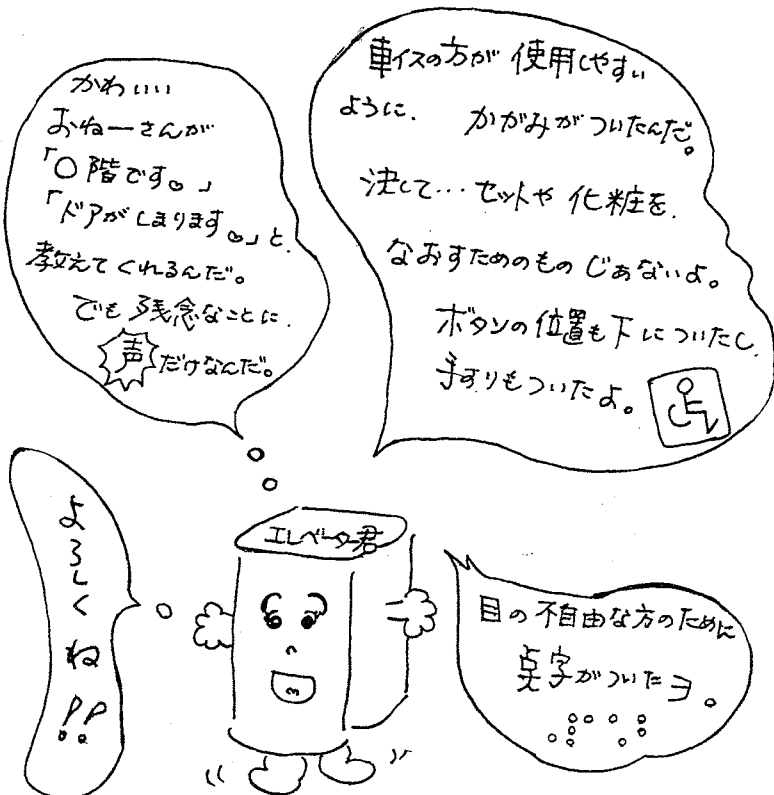 かわいい
おねーさんが
「〇階です。」
「ドアがしまります。」と、
教えてくれるんだ。
でも残念なことに、
声だけなんだ。
車イスの方が使用しやすい
ように、かがみがついたんだ。
決して…セットや化粧を、
なおすためのものじあないよ。
ボタンの位置も下についたし、
手すりもついたよ。
エレベーター君
よろしくね!!
目の不自由な方のために
点字がついたヨ。